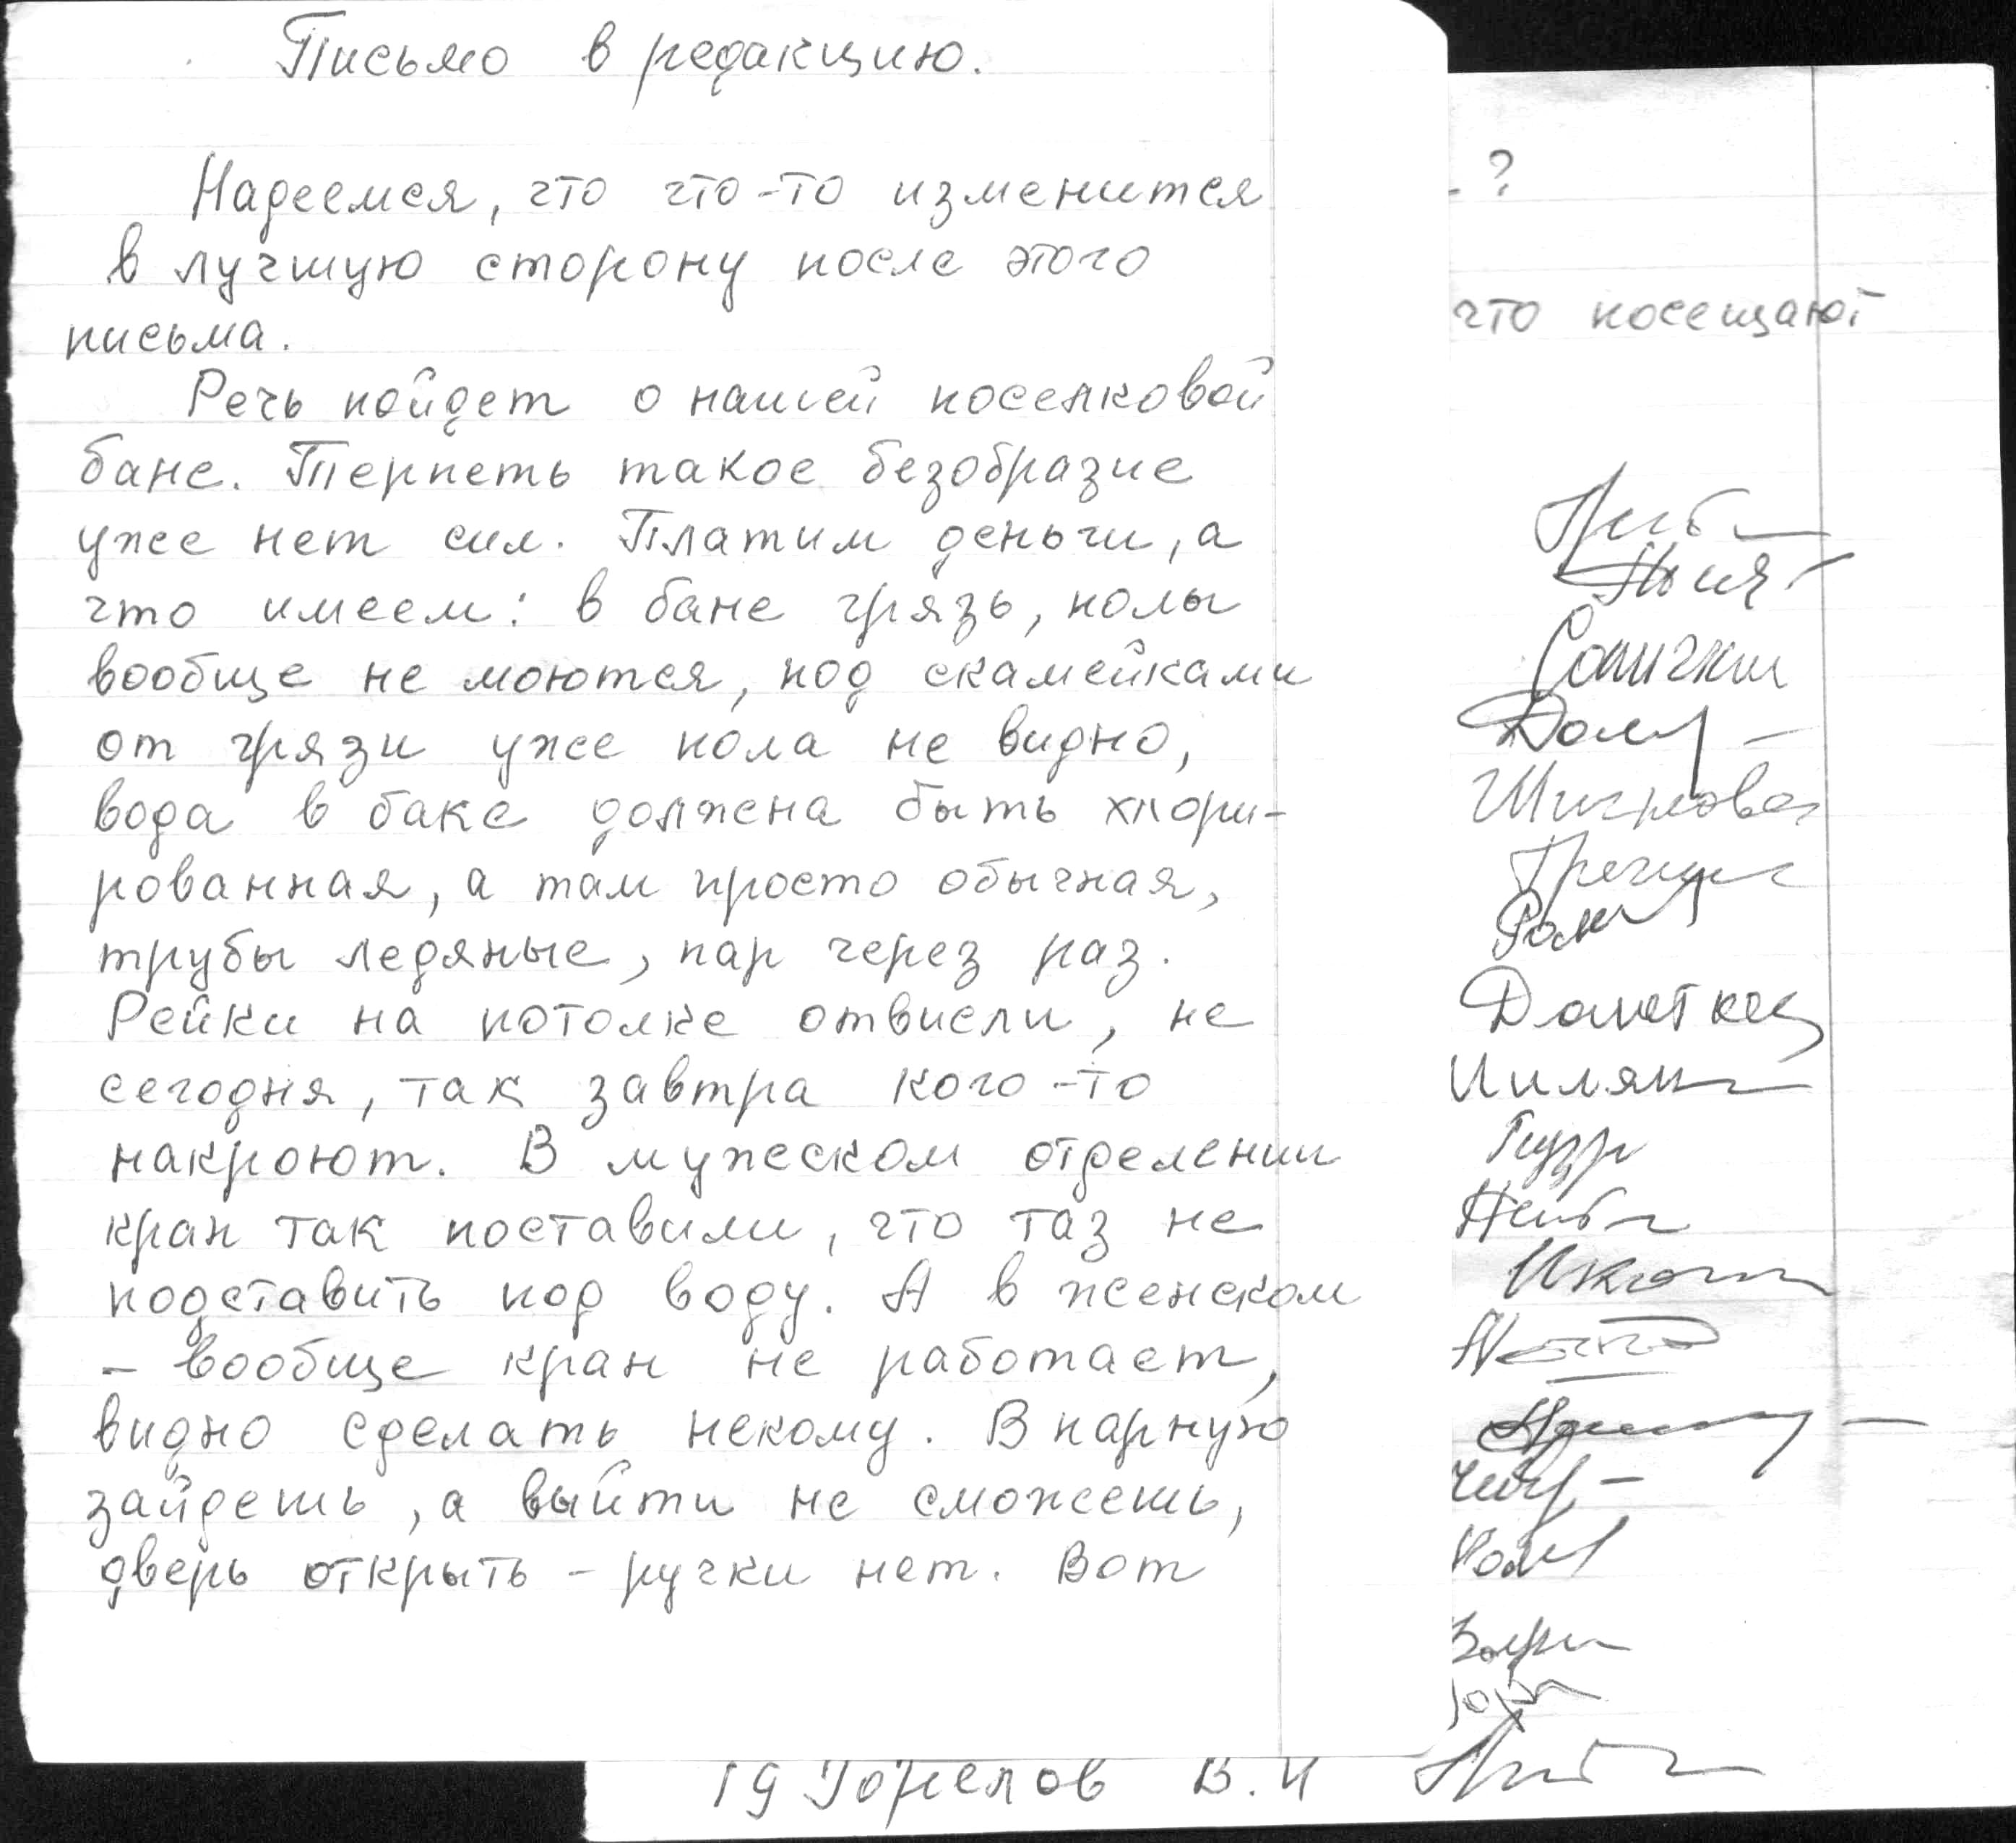 Письмо в редакцию.
Надеемся, что что-то изменится
в лучшую сторону после этого
письма.
Речь пойдет о нашей поселковой
бане. Терпеть такое безобразие
уже нет сил. Платим деньги, а
что имеем: в бане грязь, полы
вообще не моются, под скамейками
от грязи уже пола не видно,
вода в баке должена быть хлори-
рованная, а там просто обычная,
трубы ледяные, пар через раз.
Рейки на потолке отвисли, не
сегодня, так завтра кого-то
накроют. В мужеском отделении
кран так поставили, что таз не
подставить под воду. А в женском
- вообще кран не работает,
видно сделать некому. В парную
зайдешь, а выйти не сможешь,
дверь открыть - ручки нет. Вот
?
что посещают
19 Горелов В.И